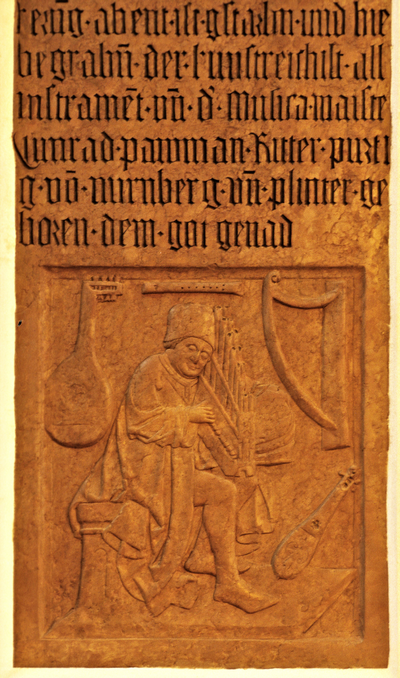 kerūg·abent·ist·gstarbn·und·hie
begrabn̄·der·kunstreichist·all
instramēt·vn̄·d'·Musica·maiste
Cunrad·pawman·Ritter·purti
g·vō·nurnberg·vn̄·plinter·ge
boren·dem·got·genad